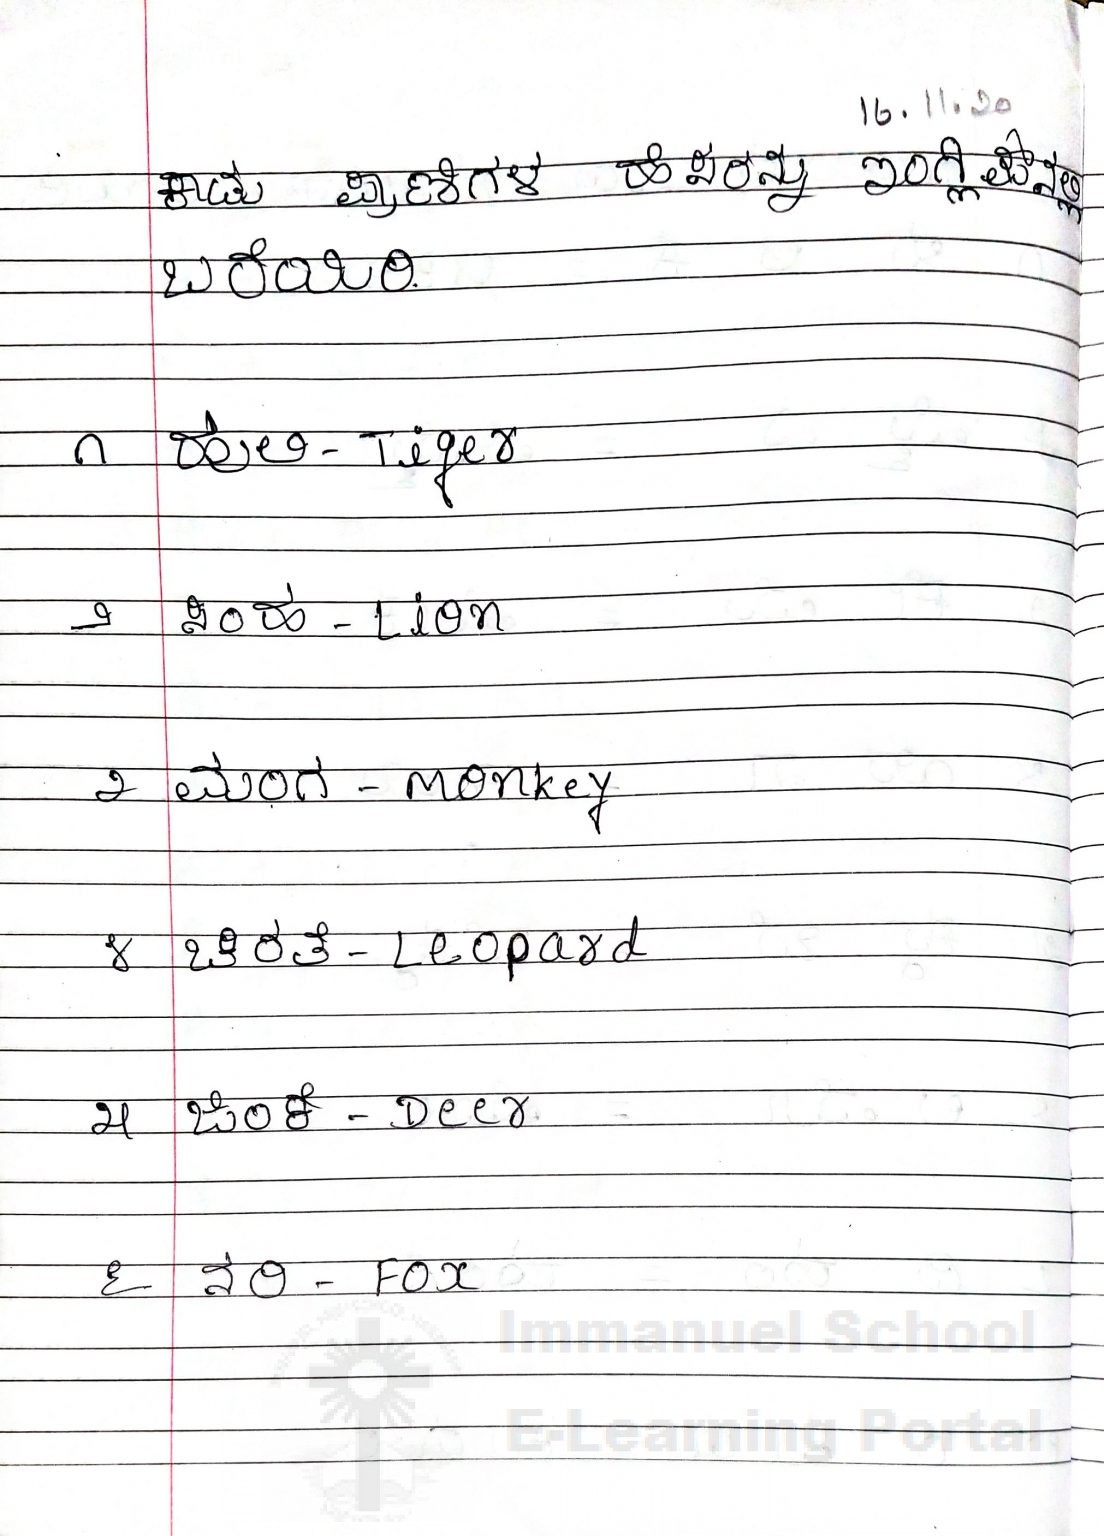 16.11.20
ಕಾಡು ಪ್ರಾಣಿಗಳ ಹೆಸರನ್ನು ಇಂಗ್ಲಿಷ್‌ನಲ್ಲಿ
ಬರೆಯಿರಿ.
೧ ಹುಲಿ - Tiger
೨ ಸಿಂಹ - Lion
೩ ಮಂಗ - Monkey
೪ ಚಿರತೆ - Leopard
೫ ಜಿಂಕೆ - Deer
೬ ನರಿ - Fox
Immanuel School
E-Learning Portal